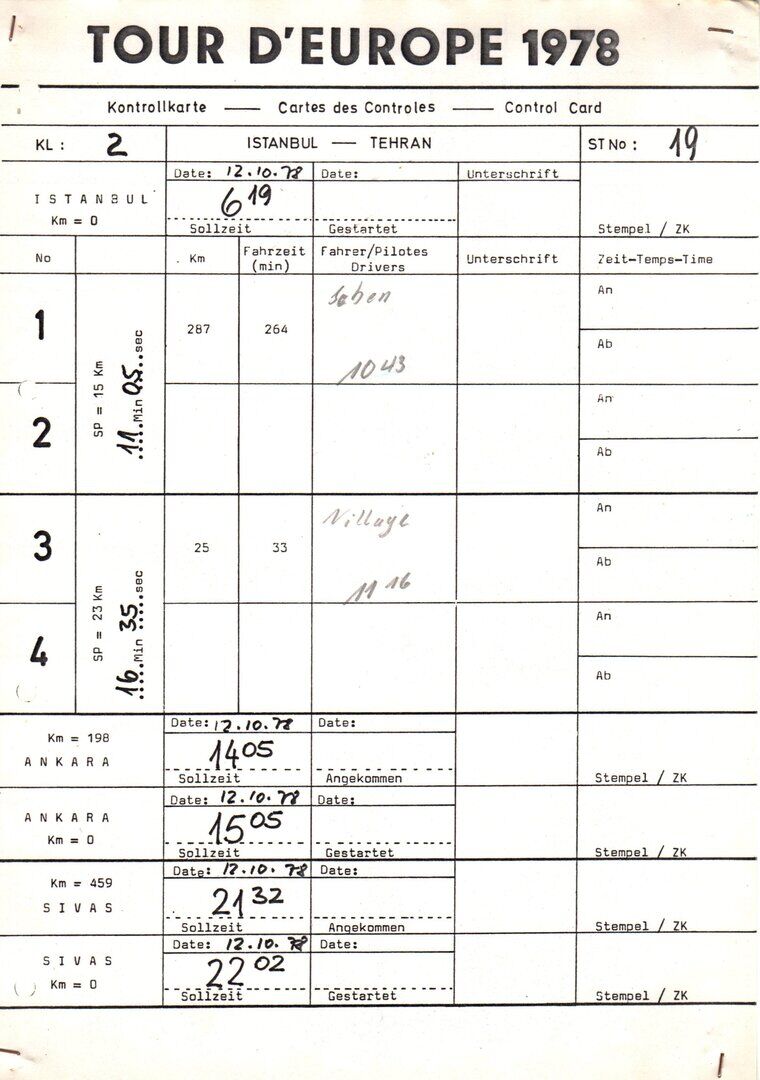 TOUR D'EUROPE 1978
Kontrollkarte — Cartes des Controles — Control Card
KL: 2 ISTANBUL — TEHRAN ST No: 19
Date: 12.10.78 Date: Unterschrift
ISTANBUL 6 19
Km = 0 Sollzeit Gestartet Stempel / ZK
No Km Fahrzeit (min) Fahrer/Pilotes Drivers Unterschrift Zeit-Temps-Time
1 287 264 An
10 43 Ab
SP = 15 Km 11 Min 05 sec
2 An
Ab
3 25 33 Village An
11 16 Ab
SP = 23 Km 16 Min 35 sec
4 An
Ab
Date: 12.10.78 Date:
Km = 198 14 05
ANKARA Sollzeit Angekommen Stempel / ZK
Date: 12.10.78 Date:
ANKARA 15 05
Km = 0 Sollzeit Gestartet Stempel / ZK
Date: 12.10.78 Date:
Km = 459 21 32
SIVAS Sollzeit Angekommen Stempel / ZK
Date: 12.10.78 Date:
SIVAS 22 02
Km = 0 Sollzeit Gestartet Stempel / ZK